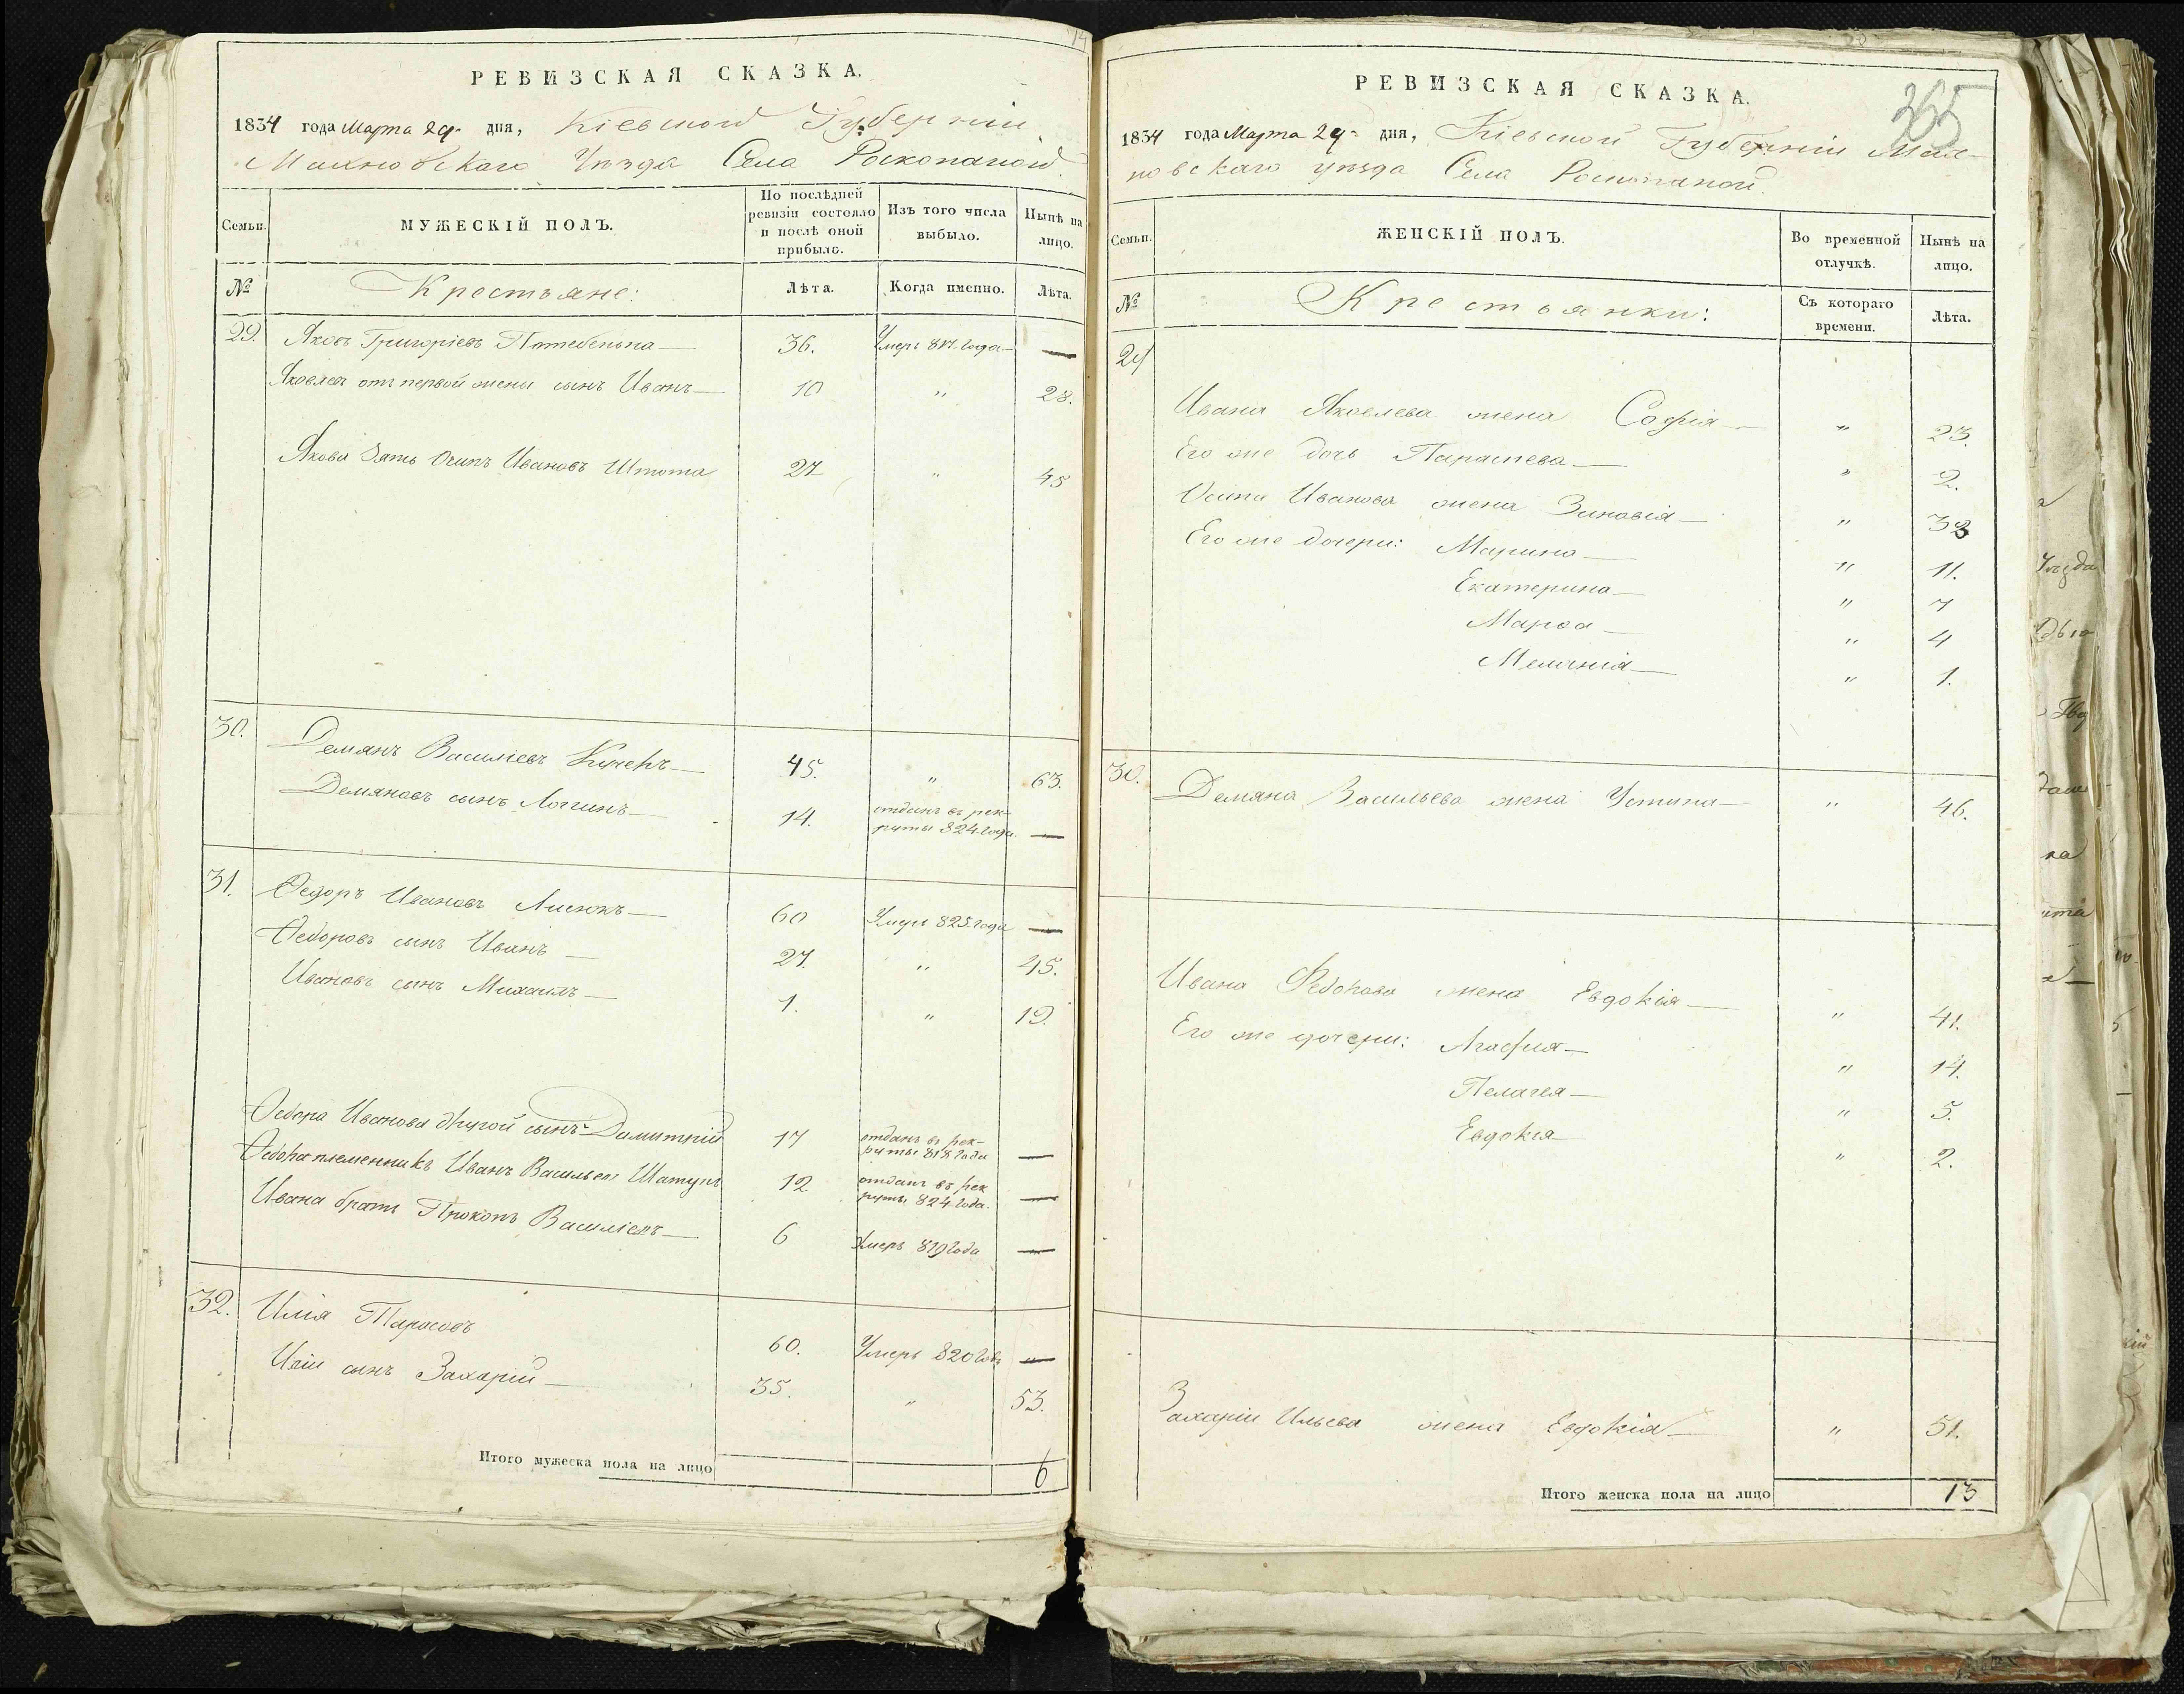 РЕВИЗСКАЯ СКАЗКА.
1834 года Марта 29 дня, Кіевской Губерніи
Махновскаго Уѣзда Села Роскопаной
Семьи.
МУЖЕСКІЙ ПОЛЪ.
По послѣдней ревизіи состояло и послѣ оной прибыло.
Изъ того числа выбыло.
Нынѣ на лицо.
№
Крестьяне:
Лѣта.
Когда именно.
Лѣта.
29. Яковъ Григоріевъ Потебенька 36. Умеръ года —
Яковлевъ отъ первой жены сынъ Иванъ 10 " 28.
Якова зять Осипъ Ивановъ 27 " 45
30. Демянъ Василіевъ 45. " 63.
Демяновъ сынъ Логинъ 14. отданъ въ рек-
руты 824 года. —
31. Ѳедоръ Ивановъ 60 Умеръ 825 года —
Ѳедоровъ сынъ Иванъ 27. " 45.
Ивановъ сынъ Михаилъ 1. " 19.
Ѳедора Иванова другой сынъ Димитрій 17 отданъ въ рек-
руты 818 года —
Ѳедора племенникъ Иванъ Васильев Шатунъ 12 отданъ въ рек
руты 824 года. —
Ивана братъ Прокопъ Василіевъ 6 Умеръ 819 года —
32. Илія Тарасовъ 60. Умеръ 820 года —
Иліи сынъ Захарій 35. " 53.
Итого мужеска пола на лицо 6
РЕВИЗСКАЯ СКАЗКА.
365
1834 года Марта 29 дня, Кіевской Губерніи Мах-
новскаго уѣзда Села Роскопаной
Семьи.
ЖЕНСКІЙ ПОЛЪ.
Во временной отлучкѣ.
Нынѣ на лицо.
№
Крестьянки:
Съ котораго времени.
Лѣта.
29
Ивана Яковлева жена Софія " 23.
Его же дочь Параскева " 2.
Осипа Иванова жена Зиновія " 33
Его же дочери: Марина " 11.
Екатерина " 7
Марѳа " 4
Меланія " 1.
30. Демяна Васильева жена Устина " 46.
Ивана Федорова жена Евдокія " 41.
Его же дочери: Агафия " 14.
Пелагея " 5.
Евдокія " 2.
Захаріи Ильева жена Евдокія " 51.
Итого женска пола на лицо 13